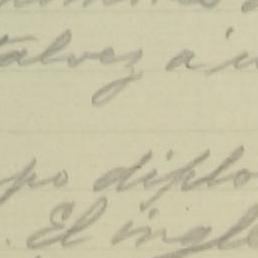 talvez a
po diplo
. El ingle